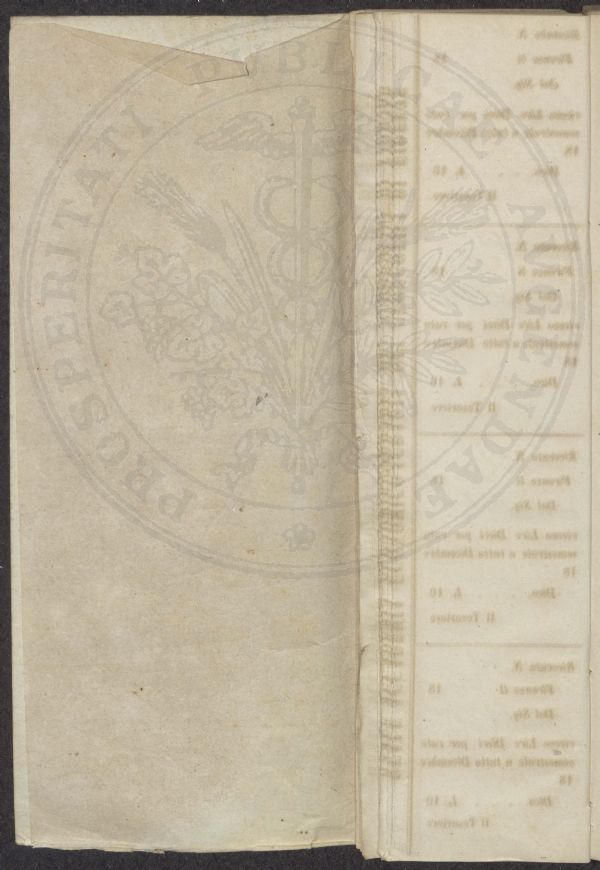 PROSPERITATI PUBLICAE AUGENDAE
Ricevuta N.
Firenze il 18
Dal Sig.
ricevo Lire Dieci per rata
semestrale a tutto Dicembre
18
Dico . . . . L. 10
Il Tesoriere
Ricevuta N.
Firenze il 18
Dal Sig.
ricevo Lire Dieci per rata
semestrale a tutto Dicembre
18
Dico . . . . L. 10
Il Tesoriere
Ricevuta N.
Firenze il 18
Dal Sig.
ricevo Lire Dieci per rata
semestrale a tutto Dicembre
18
Dico . . . . L. 10
Il Tesoriere
Ricevuta N.
Firenze il 18
Dal Sig.
ricevo Lire Dieci per rata
semestrale a tutto Dicembre
18
Dico . . . . L. 10
Il Tesoriere